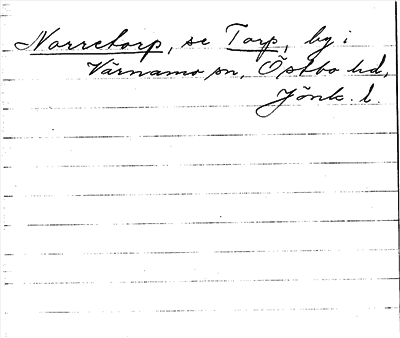 Norretorp, se Torp, by i
Värnamo sn, Östbo hd,
Jönk. l.